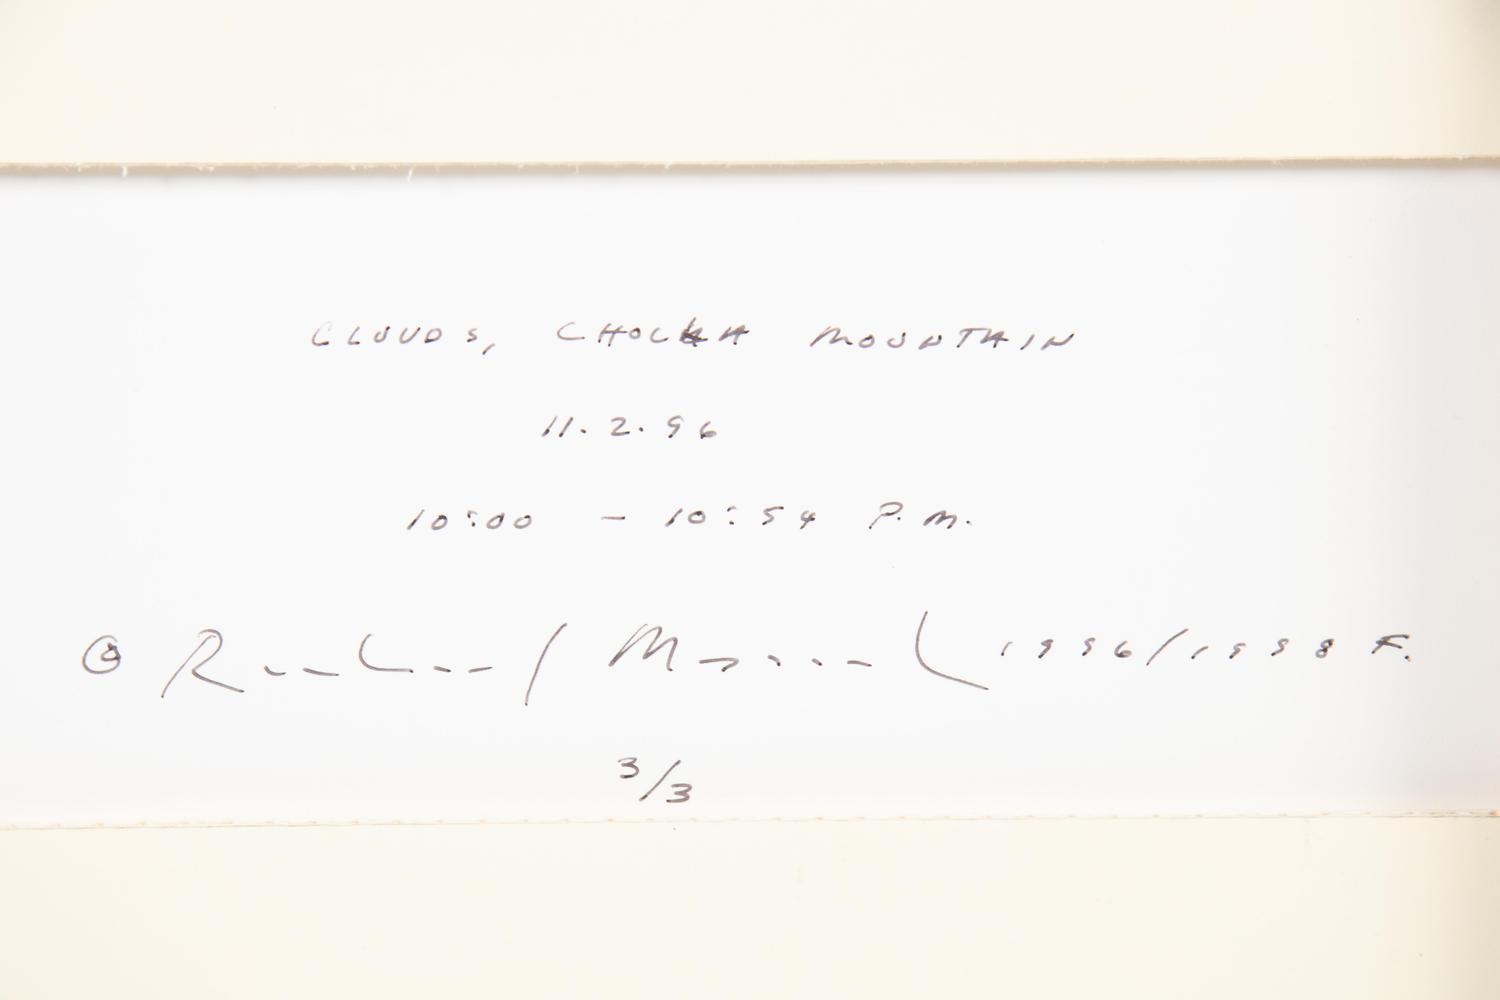 CLOUDS, CHOLLA MOUNTAIN
11.2.96
10:00 - 10:54 P.M.
© Richard Misrach 1996/1998 F.
3/3